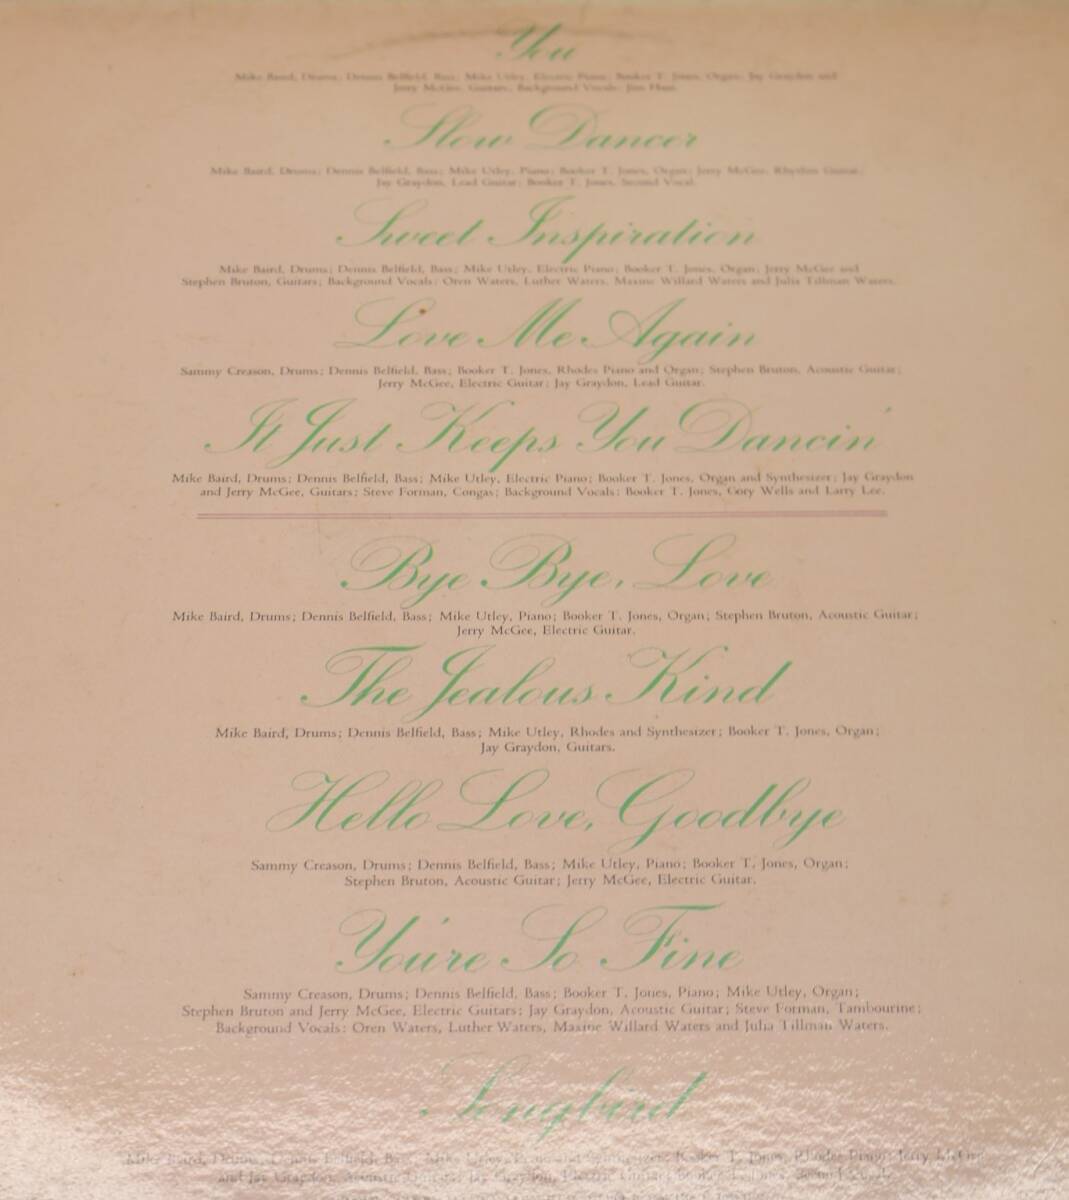 You
Mike Baird, Drums; Dennis Belfield, Bass; Mike Utley, Electric Piano; Booker T. Jones, Organ; Jay Graydon and
Jerry McGee, Guitars; Background Vocals: Jim
Slow Dancer
Mike Baird, Drums; Dennis Belfield, Bass; Mike Utley, Piano; Booker T. Jones, Organ; Jerry McGee, Rhythm Guitar;
Jay Graydon, Lead Guitar; Booker T. Jones, Second Vocal.
Sweet Inspiration
Mike Baird, Drums; Dennis Belfield, Bass; Mike Utley, Electric Piano; Booker T. Jones, Organ; Jerry McGee and
Stephen Bruton, Guitars; Background Vocals: Oren Waters, Luther Waters, Maxine Willard Waters and Julia Tillman Waters.
Love Me Again
Sammy Creason, Drums; Dennis Belfield, Bass; Booker T. Jones, Rhodes Piano and Organ; Stephen Bruton, Acoustic Guitar;
Jerry McGee, Electric Guitar; Jay Graydon, Lead Guitar.
It Just Keeps You Dancin'
Mike Baird, Drums; Dennis Belfield, Bass; Mike Utley, Electric Piano; Booker T. Jones, Organ and Synthesizer; Jay Graydon
and Jerry McGee, Guitars; Steve Forman, Congas; Background Vocals: Booker T. Jones, Cory Wells and Larry Lee.
Bye Bye, Love
Mike Baird, Drums; Dennis Belfield, Bass; Mike Utley, Piano; Booker T. Jones, Organ; Stephen Bruton, Acoustic Guitar;
Jerry McGee, Electric Guitar.
The Jealous Kind
Mike Baird, Drums; Dennis Belfield, Bass; Mike Utley, Rhodes and Synthesizer; Booker T. Jones, Organ;
Jay Graydon, Guitars.
Hello Love, Goodbye
Sammy Creason, Drums; Dennis Belfield, Bass; Mike Utley, Piano; Booker T. Jones, Organ;
Stephen Bruton, Acoustic Guitar; Jerry McGee, Electric Guitar.
You're So Fine
Sammy Creason, Drums; Dennis Belfield, Bass; Booker T. Jones, Piano; Mike Utley, Organ;
Stephen Bruton and Jerry McGee, Electric Guitars; Jay Graydon, Acoustic Guitar; Steve Forman, Tambourine;
Background Vocals: Oren Waters, Luther Waters, Maxine Willard Waters and Julia Tillman Waters.
Songbird
Mike Baird, Drums; Dennis Belfield, Bass; Mike Utley, and Synthesizer; Booker T. Jones, Rhodes Piano; Jerry McGee
and Jay Graydon, Acoustic Guitars; Jay Graydon, Electric Guitar; Booker T. Jones,